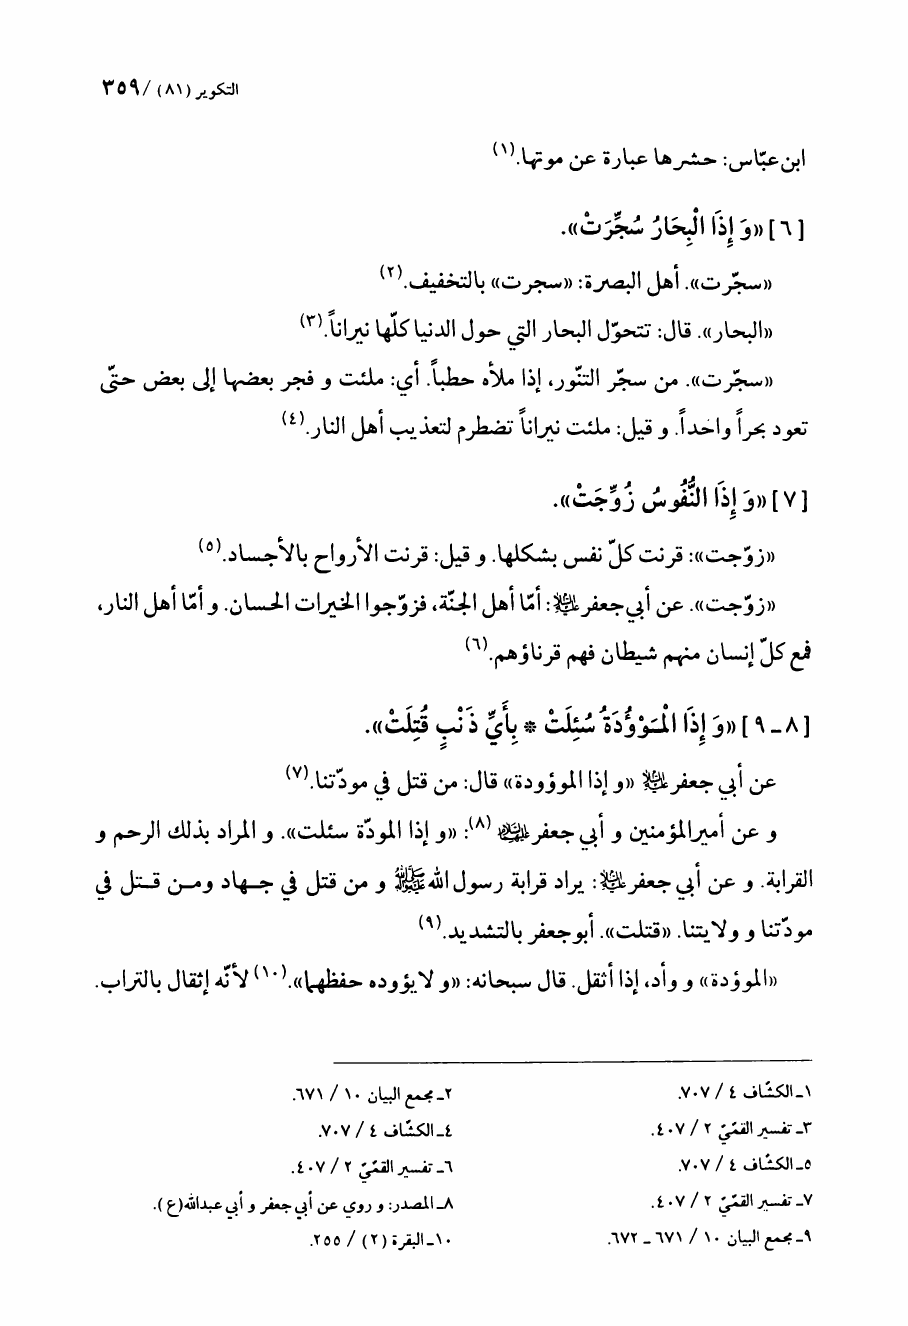 التكوير (٨١) / ٣٥٩
ابن عبّاس: حشرها عبارة عن موتها.(١)
[٦] «وَ إِذَا الْبِحَارُ سُجِّرَتْ».
«سجّرت». أهل البصرة: «سجرت» بالتخفيف.(٢)
«البحار». قال: تتحوّل البحار التي حول الدنيا كلّها نيراناً.(٣)
«سجّرت». من سجّر التنّور، إذا ملأه حطباً. أي: ملئت و فجر بعضها إلى بعض حتّى
تعود بحراً واحداً. و قيل: ملئت نيراناً تضطرم لتعذيب أهل النار.(٤)
[٧] «وَ إِذَا النُّفُوسُ زُوِّجَتْ».
«زوّجت»: قرنت كلّ نفس بشكلها. و قيل: قرنت الأرواح بالأجساد.(٥)
«زوّجت». عن أبي جعفر عليه السلام: أمّا أهل الجنّة، فزوّجوا الخيرات الحسان. و أمّا أهل النار،
فمع كلّ إنسان منهم شيطان فهم قرناؤهم.(٦)
[٨ ـ ٩] «وَ إِذَا الْمَوْؤُدَةُ سُئِلَتْ * بِأَيِّ ذَنْبٍ قُتِلَتْ».
عن أبي جعفر عليه السلام «و إذا الموؤودة» قال: من قتل في مودّتنا.(٧)
و عن أميرالمؤمنين و أبي جعفر عليهما السلام(٨): «و إذا المودّة سئلت». و المراد بذلك الرحم و
القرابة. و عن أبي جعفر عليه السلام: يراد قرابة رسول الله صلى الله عليه وآله و من قتل في جهاد ومن قتل في
مودّتنا و ولايتنا. «قتلت». أبوجعفر بالتشديد.(٩)
«الموؤدة» و وأد، إذا أثقل. قال سبحانه: «و لايؤوده حفظهما».(١٠) لأنّه إثقال بالتراب.
١ـ الكشّاف ٤ / ٧٠٧.
٢ـ مجمع البيان ١٠ / ٦٧١.
٣ـ تفسير القمّيّ ٢ / ٤٠٧.
٤ـ الكشّاف ٤ / ٧٠٧.
٥ـ الكشّاف ٤ / ٧٠٧.
٦ـ تفسير القمّيّ ٢ / ٤٠٧.
٧ـ تفسير القمّيّ ٢ / ٤٠٧.
٨ـ المصدر: و روي عن أبي جعفر و أبي عبدالله(ع).
٩ـ مجمع البيان ١٠ / ٦٧١ ـ ٦٧٢.
١٠ـ البقرة (٢) / ٢٥٥.